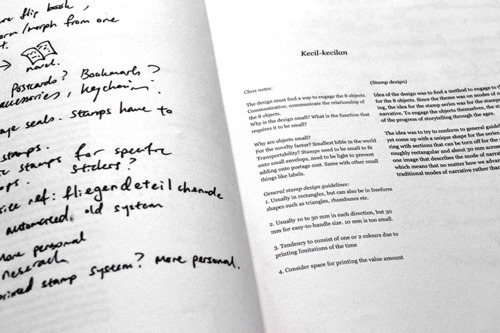 flip book,
/morph from one
novel.
Postcards? Bookmarks?
accessories, keychain.
seals. Stamps have to
stamps.
stamps for specific
stickers?
ref: fliegendeteilchen.de
automated. old system
more personal
research
stamp system? More personal.
Kecil-kecilan
Class notes:
The design must find a way to engage the 8 objects.
Communicative, communicate the relationship of
the 8 objects.
Why is the design small? What is the function that
requires it to be small?
Why are objects small?
For the novelty factor? Smallest bible in the world
Transportability? Stamps need to be small to fit
onto small envelops, need to be light to prevent
adding onto postage cost. Same with other small
things like labels.
General stamp design guidelines:
1. Usually in rectangles, but can also be in freeform
shapes such as triangles, rhombutes etc.
2. Usually 10 to 30 mm in each direction, but 30
mm for easy-to-handle size. 10 mm is too small.
3. Tendency to consist of one or 2 colours due to
printing limitations of the time
4. Consider space for printing the value amount
(Stamp design)
Idea of the design was to find a method to engage to th
for the 8 objects. Since the theme was on modes of n
ing, the idea for the stamp series was for the stamp
narrative. To engage the objects themselves, the st
of the progress of storytelling through the ages.
The idea was to try to conform to general guidel
yet come up with a unique shape for the stamps,
ring with sections that can be torn off for the
roughly rectangular and about 30 mm across
one image that describes the mode of narrat
which means that no matter how we advan
traditional modes of narrative rather than